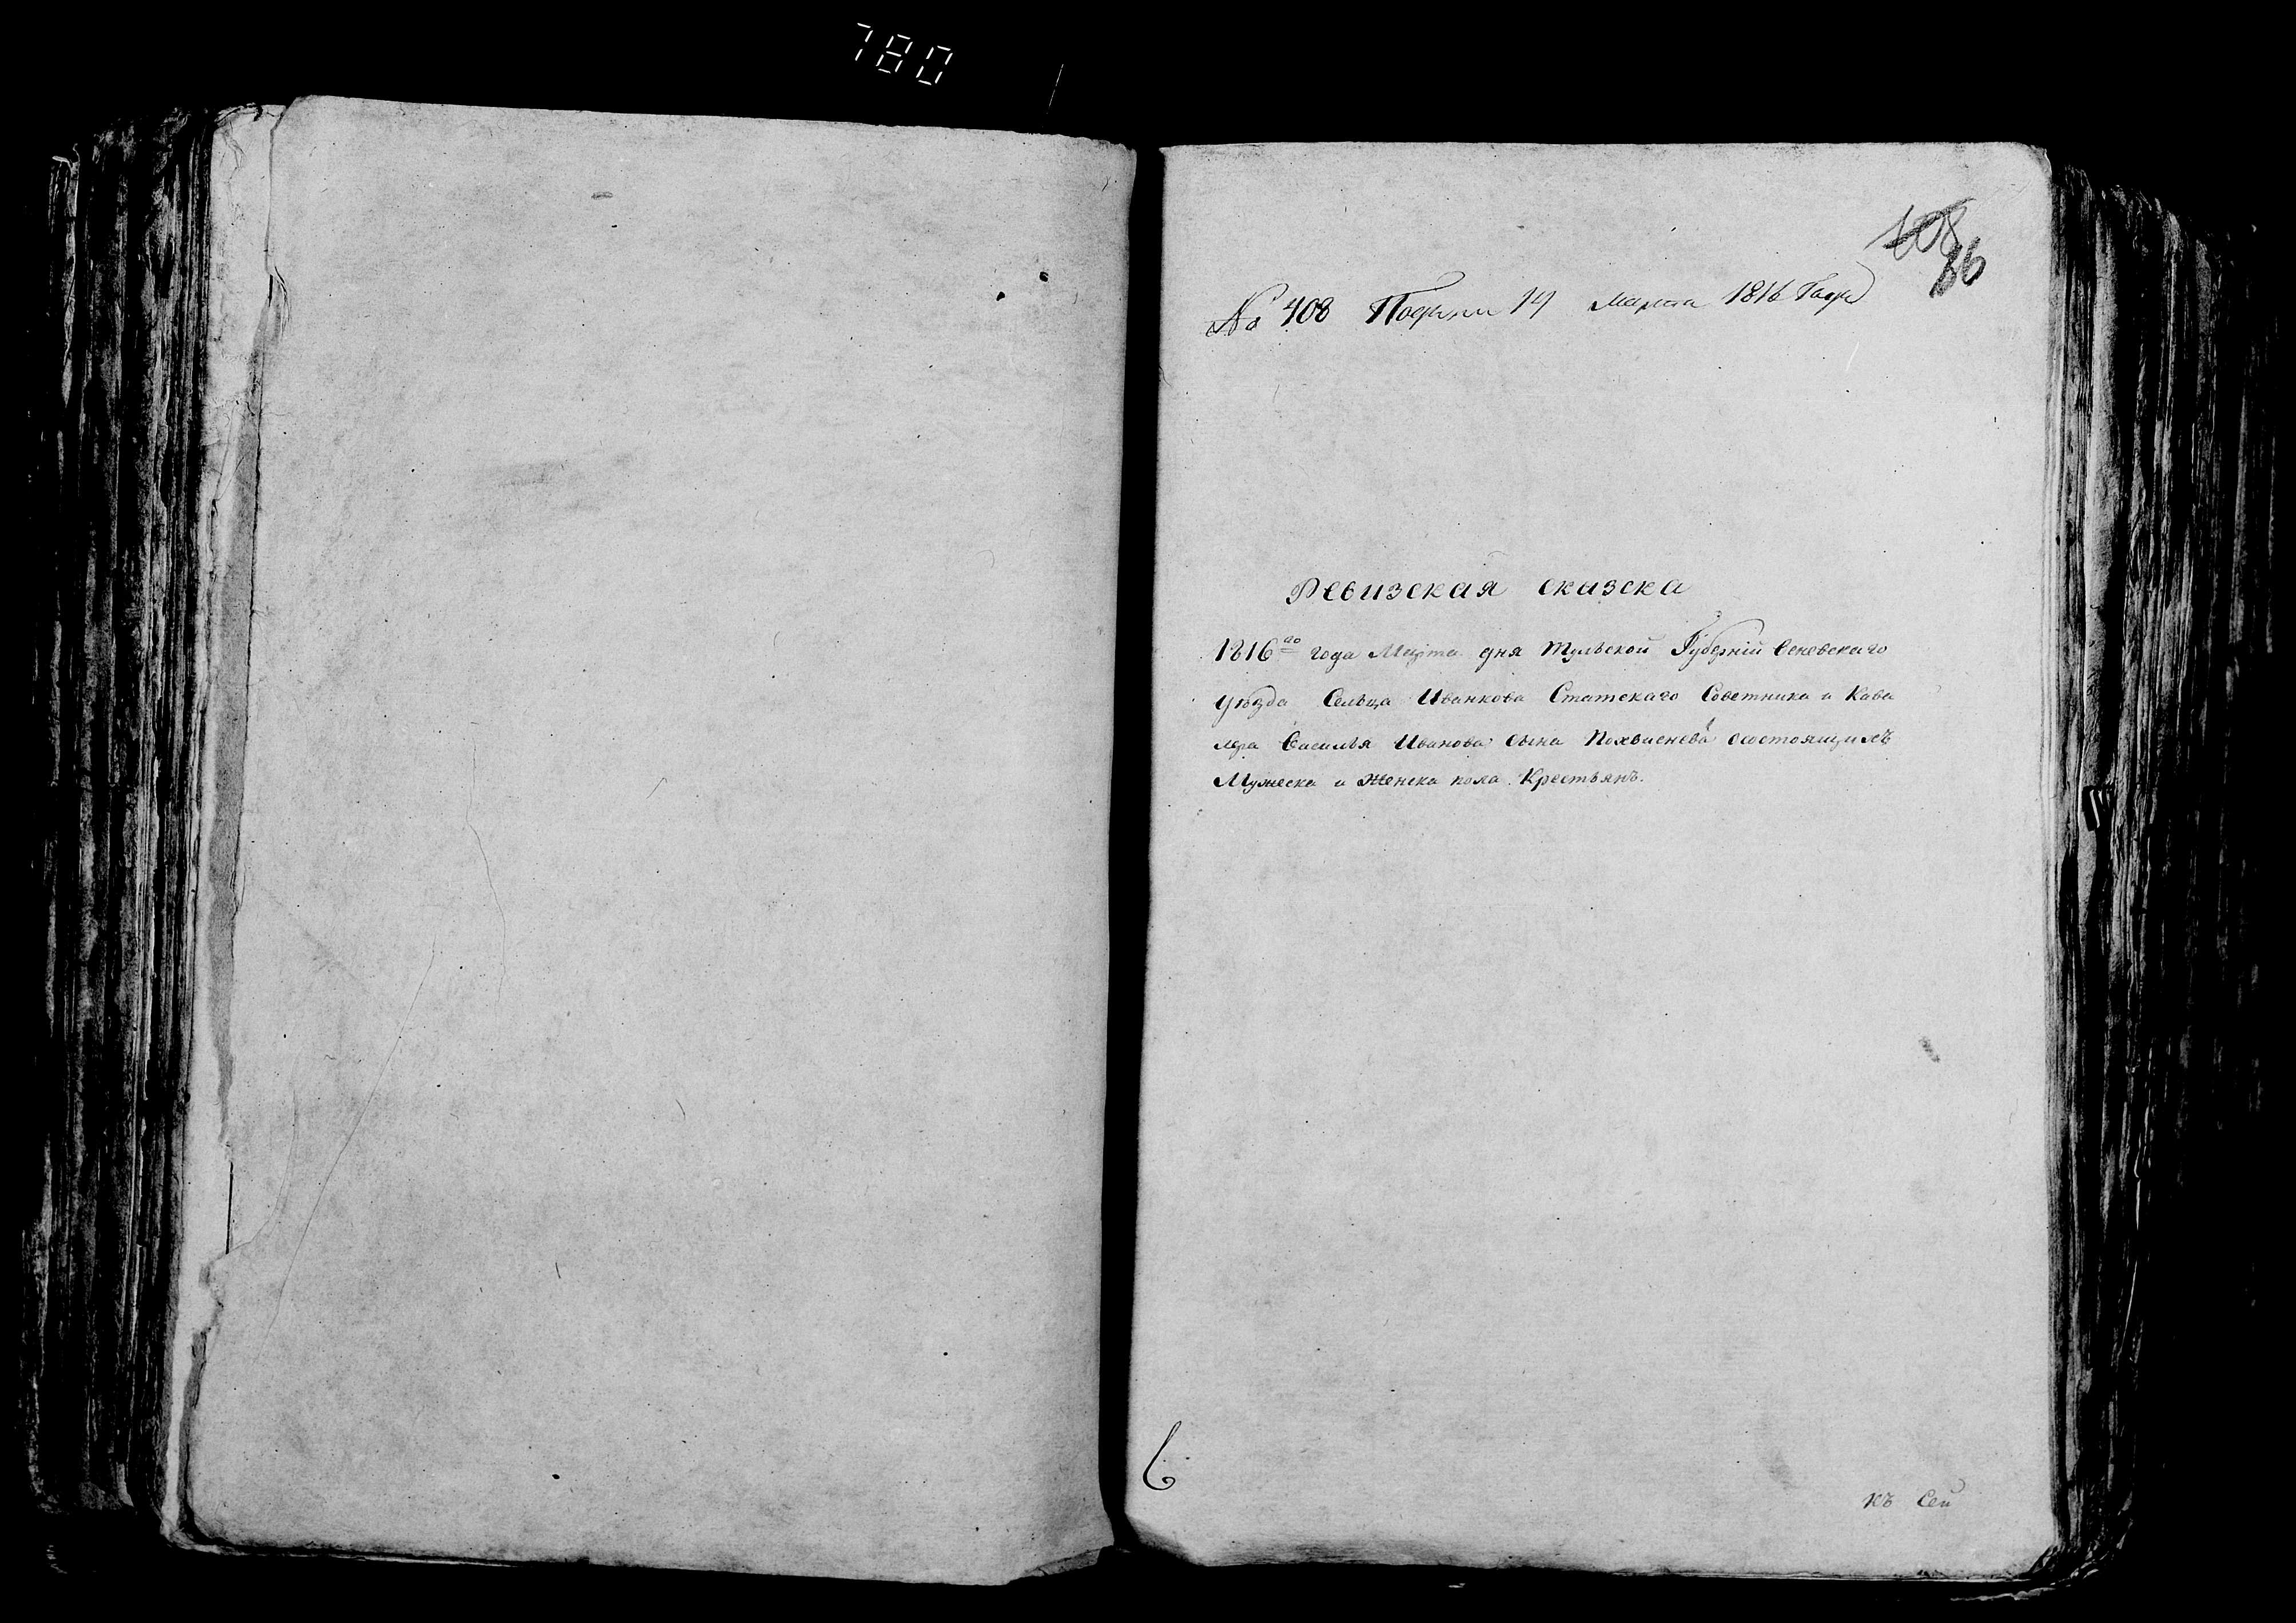 780
108
86
№ 408 14 марта 1816 Года
Ревизская сказска
1816го года Марта дня Тульской Губернїи Веневскаго
уѣзда Сельца Иванкова Статскаго Советника и Кава
лера Василья Иванова сына Похвиснева состоящимъ
Мужеска и Женска пола Крестьянъ.
къ Сей